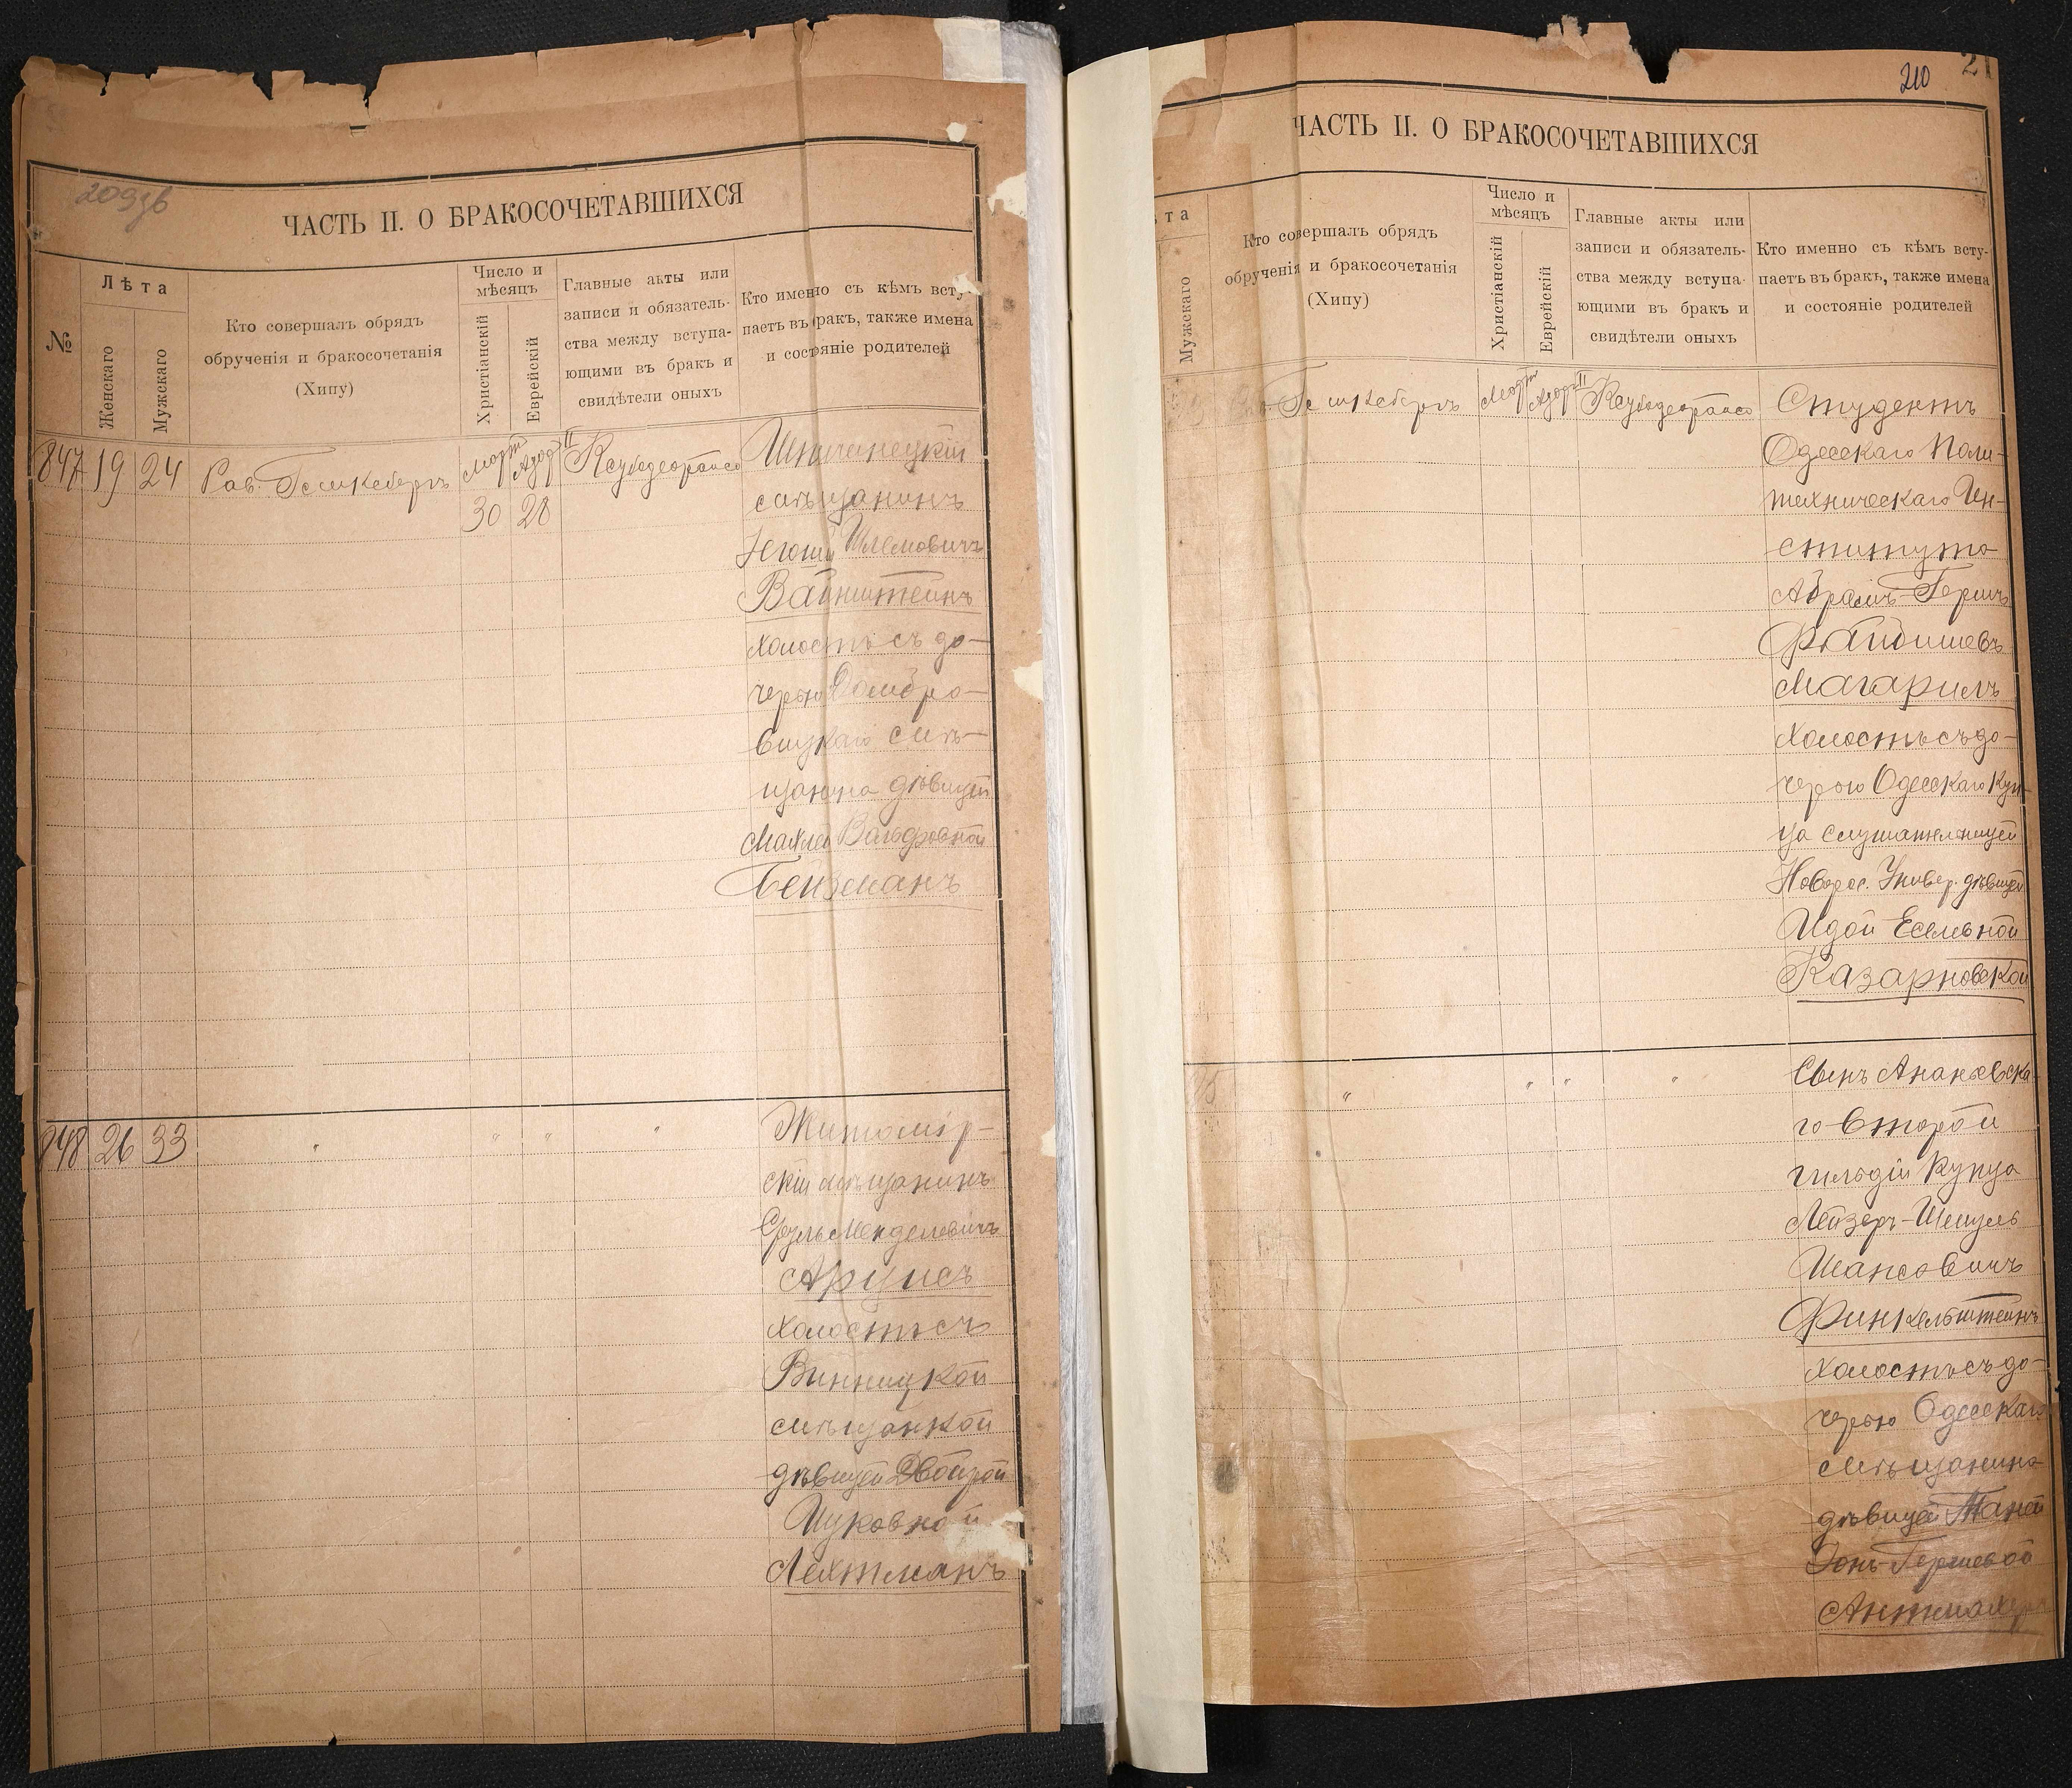 209зв
ЧАСТЬ II. О БРАКОСОЧЕТАВШИХСЯ
№
Лѣта
Женскаго
Мужскаго
Кто совершалъ обрядъ
обрученія и бракосочетанія
(Хипу)
Число и
мѣсяцъ
Христіанскій
Еврейскій
Главные акты или
записи и обязатель-
ства между вступа-
ющими въ бракъ и
свидѣтели оныхъ
Кто именно съ кѣмъ всту-
паетъ въ бракъ, также имена
и состояніе родителей
847 19 24 Рав. Гешкебергъ Мартъ 30 Адар II 28
мѣщанинъ
Шлемовичъ
Вайнштейнъ
холостъ съ до-
черью Домбро-
вицкаго мѣ-
щанина дѣвицей
Вольфовной
Бейзманъ
848 26 33 " " " "
Житомір-
скій мѣщанинъ
Сруль Менделевичъ
Аруисъ
холостъ съ
Винницкой
мѣщанкой
дѣвицей Двойрой
Ицковной
Лехтманъ
210
ЧАСТЬ II. О БРАКОСОЧЕТАВШИХСЯ
та
Мужскаго
Кто совершалъ обрядъ
обрученія и бракосочетанія
(Хипу)
Число и
мѣсяцъ
Христіанскій
Еврейскій
Главные акты или
записи и обязатель-
ства между вступа-
ющими въ бракъ и
свидѣтели оныхъ
Кто именно съ кѣмъ всту-
паетъ въ бракъ, также имена
и состояніе родителей
Гешкебергъ Мартъ Адар II
Студентъ
Одесскаго Поли-
техническаго Ин-
ститута
Абрамъ-Гершъ
Файбишевъ
Магарилъ
холостъ съ до-
черью Одесскаго Куп-
ца слушательницей
Новорос. Универ. дѣвицей
Идой Еселевной
Казарновской
" " " "
Сынъ Ананьевска-
го второй
гильдіи Купца
Лейзеръ-Шмуль
Шансовичъ
Финкельштейнъ
холостъ съ до-
черью Одесскаго
мѣщанина
дѣвицей Маней
Гершевой